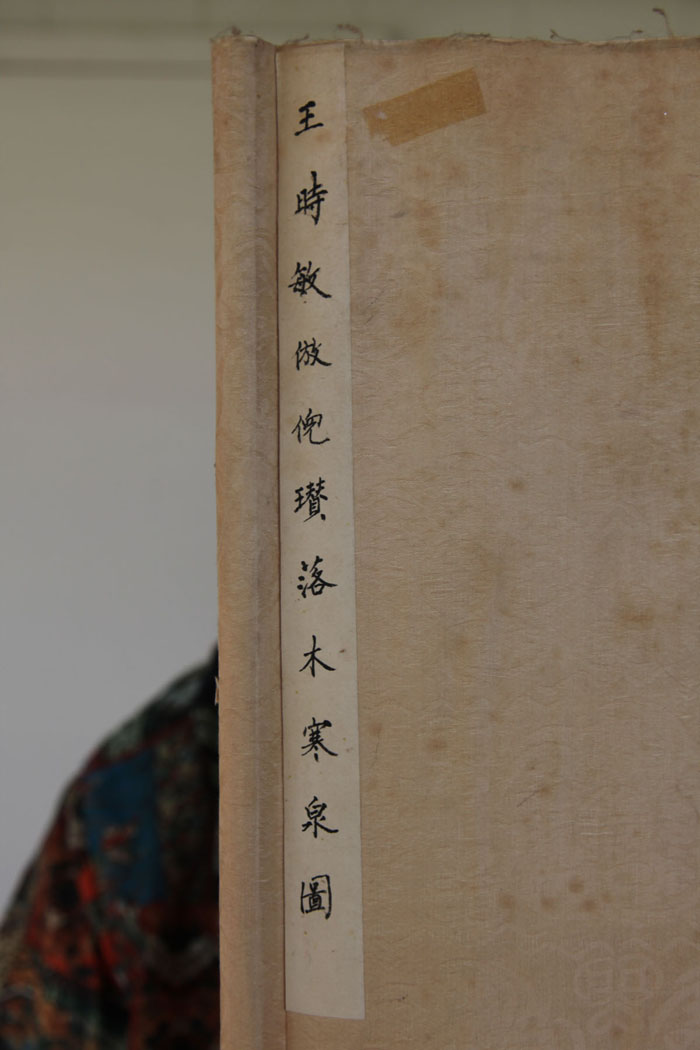 王時敏倣倪瓚落木寒泉圖